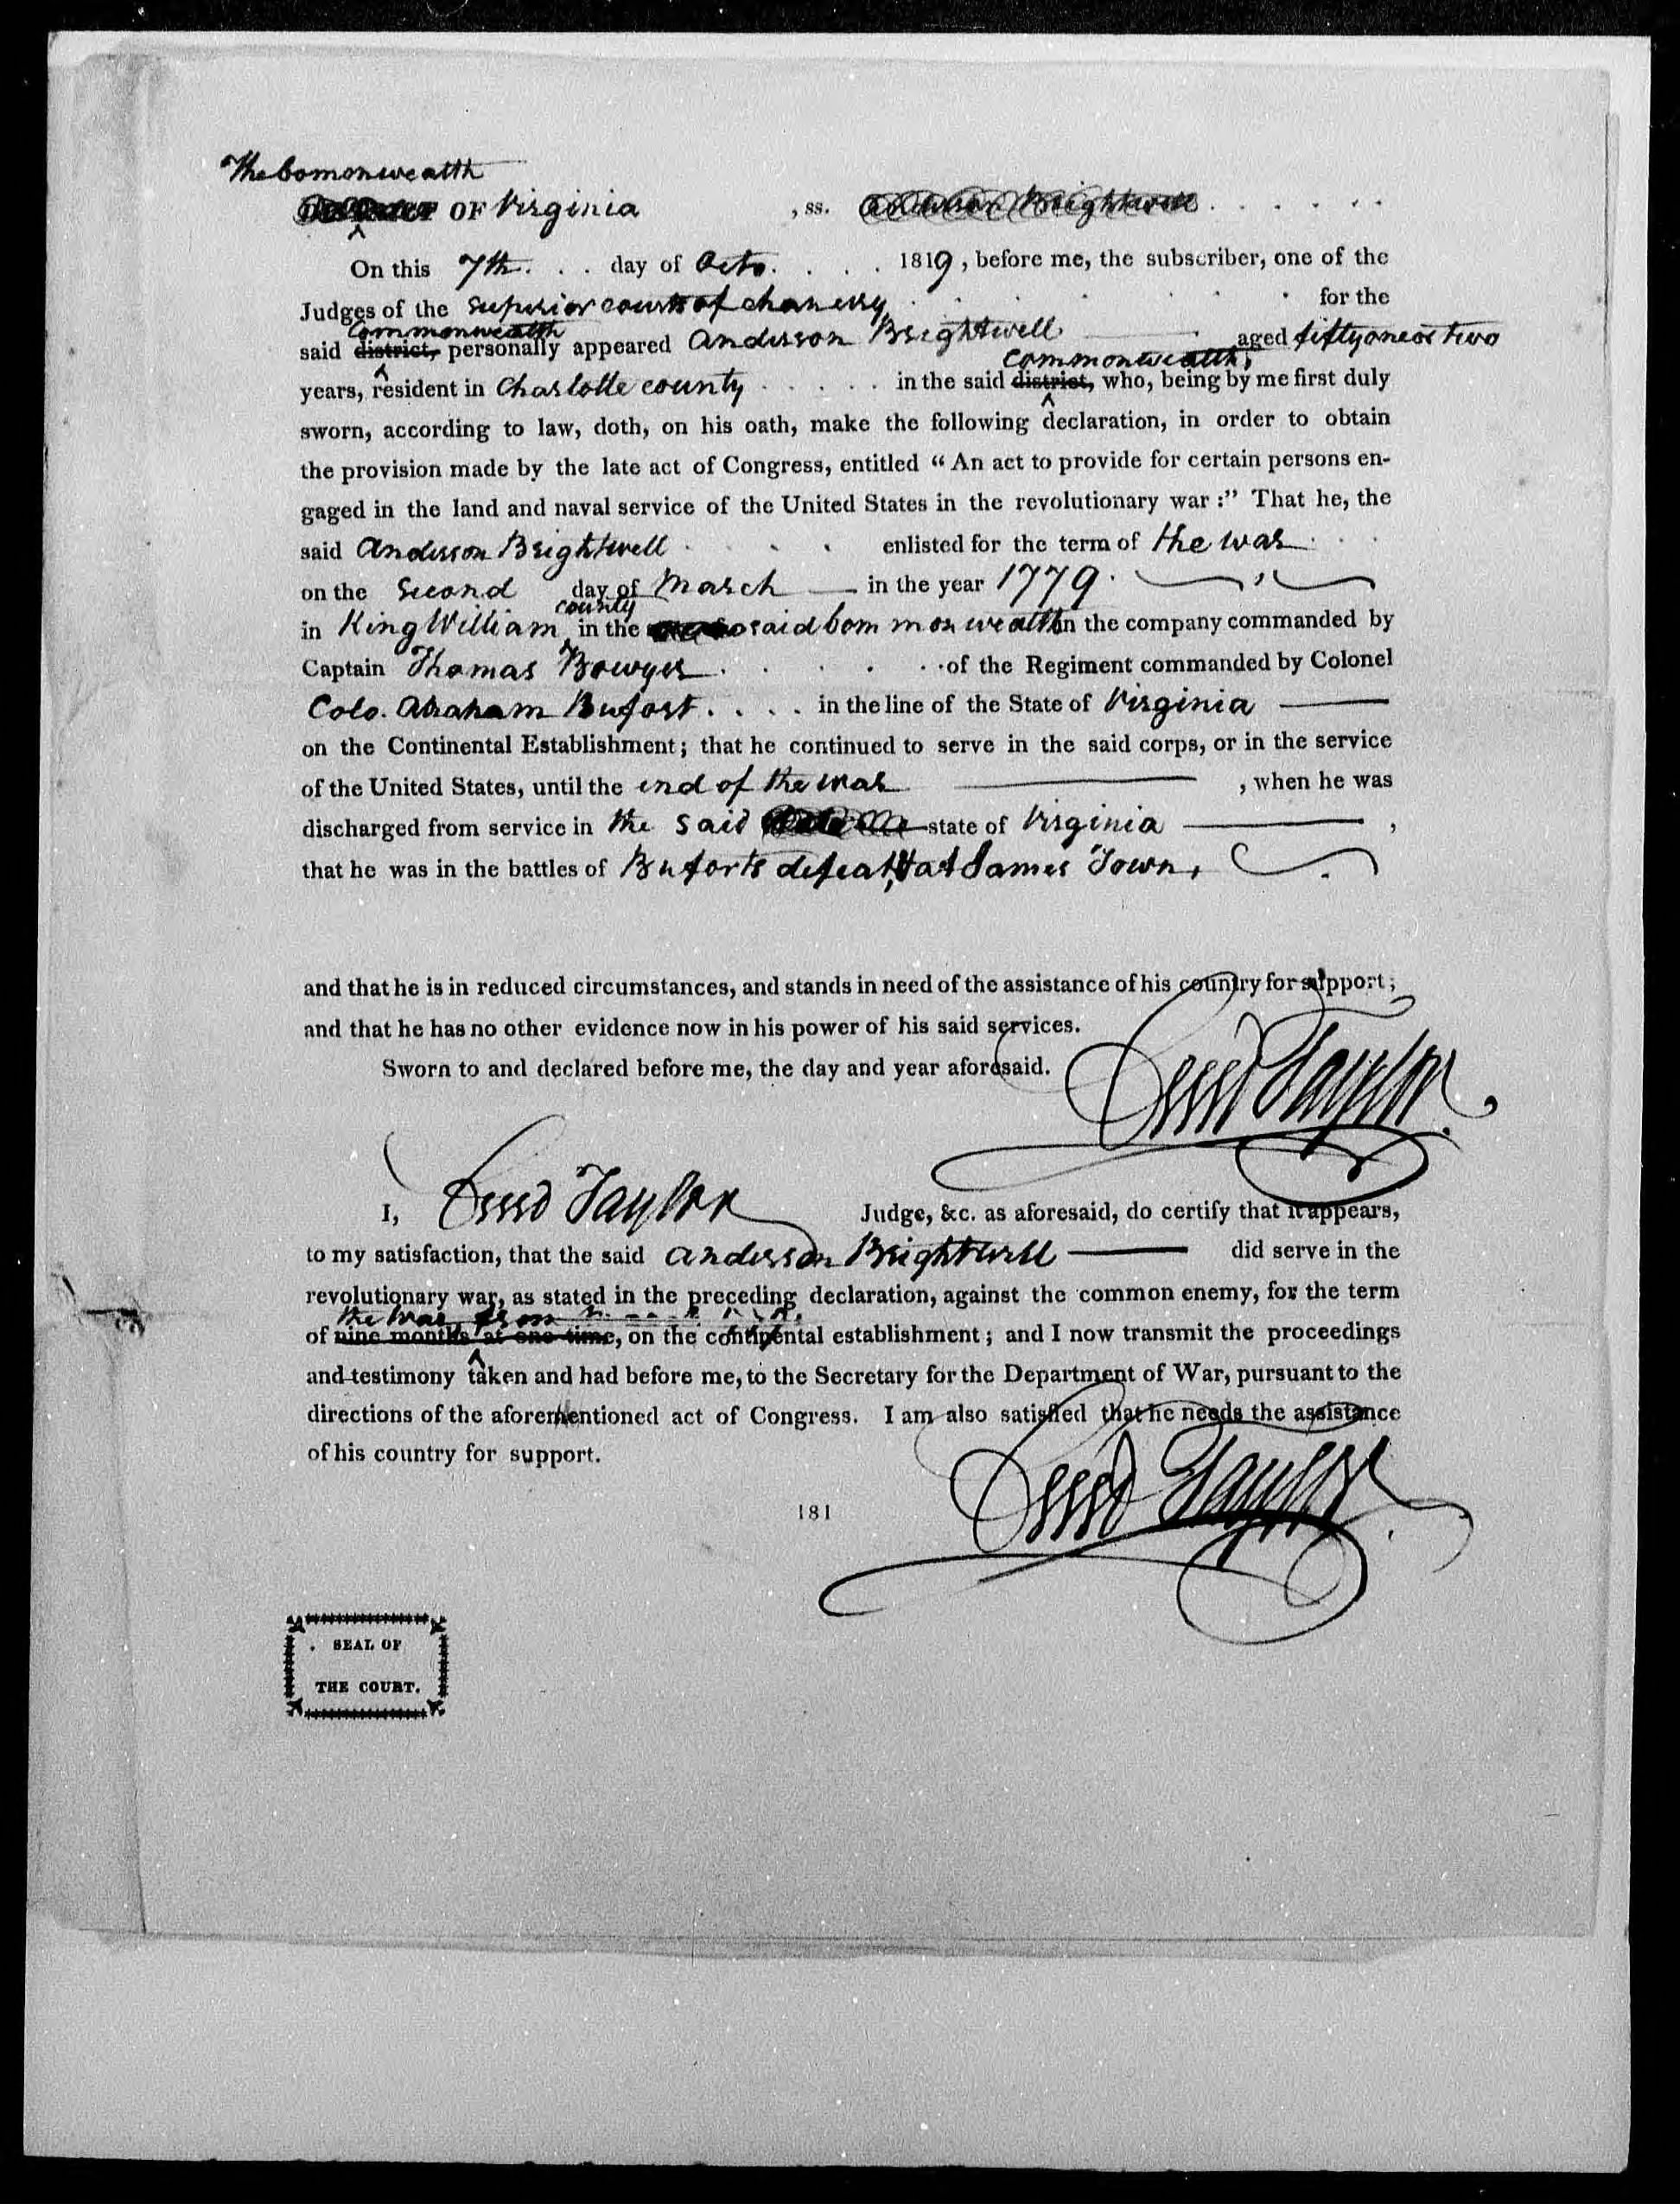 The Comonwealth
OF Virginia , ss. Anderson Brightwell
On this 7th. day of Octo. 1819, before me, the subscriber, one of the
Judges of the Superior courts of chancery for the
Commonwealth
said district, personally appeared Anderson Brightwell aged fifty one or two
commonwealth,
years, resident in Charlotte county in the said district, who, being by me first duly
sworn, according to law, doth, on his oath, make the following declaration, in order to obtain
the provision made by the late act of Congress, entitled “ An act to provide for certain persons en-
gaged in the land and naval service of the United States in the revolutionary war :” That he, the
said Anderson Brightwell enlisted for the term of the war
on the Second day of March in the year 1779.
county
in King William in the said Commonwealth in the company commanded by
Captain Thomas Bowyer of the Regiment commanded by Colonel
Colo. Abraham Bufort in the line of the State of Virginia
on the Continental Establishment; that he continued to serve in the said corps, or in the service
of the United States, until the end of the war , when he was
discharged from service in the said state of Virginia ,
that he was in the battles of Buforts defeat, & at James Town,
and that he is in reduced circumstances, and stands in need of the assistance of his country for support;
and that he has no other evidence now in his power of his said services.
Sworn to and declared before me, the day and year aforesaid.
Creed Taylor.
I, Creed Taylor Judge, &c. as aforesaid, do certify that it appears,
to my satisfaction, that the said Anderson Brightwell did serve in the
revolutionary war, as stated in the preceding declaration, against the common enemy, for the term
the war from
of nine months at one time, on the continental establishment; and I now transmit the proceedings
and testimony taken and had before me, to the Secretary for the Department of War, pursuant to the
directions of the aforementioned act of Congress. I am also satisfied that he needs the assistance
of his country for support.
Creed Taylor.
181
SEAL OF
THE COURT.